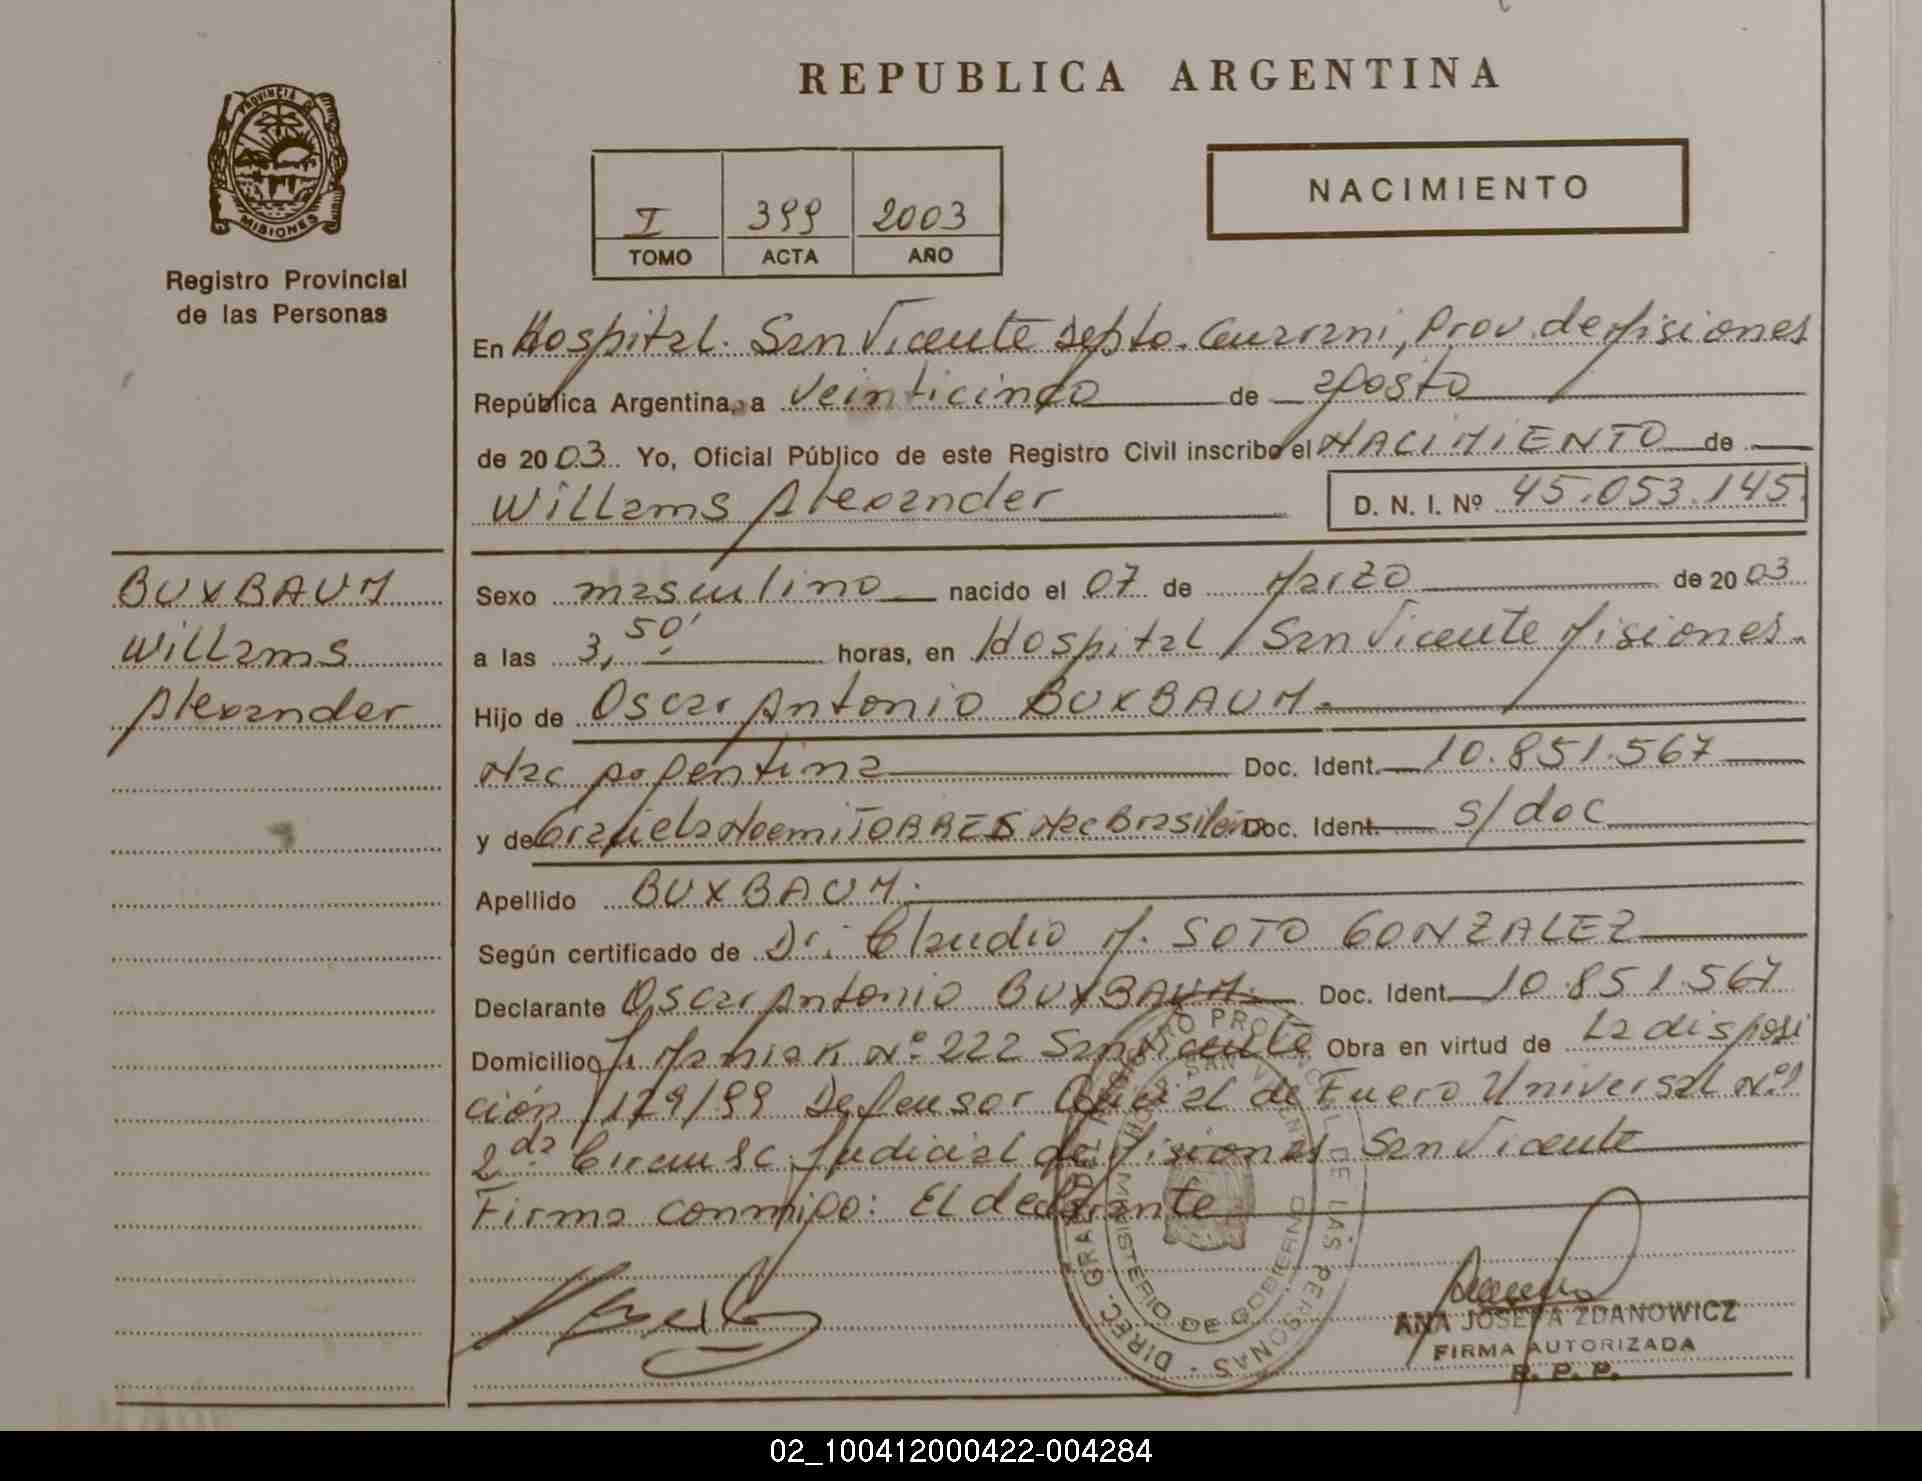 REPUBLICA ARGENTINA
PROVINCIA DE
MISIONES
Registro Provincial
de las Personas
I 399 2003
TOMO ACTA AÑO
NACIMIENTO
En Hospital. San Vicente Depto. Guarani, Prov. de Misiones
República Argentina, a veinticinco de agosto
de 2003. Yo, Oficial Público de este Registro Civil inscribo el NACIMIENTO de
Willams Alexander
D. N. I. Nº 45.053.145.
BUXBAUM
Willams
Alexander
Sexo masculino nacido el 07 de Marzo de 2003
a las 3,50' horas, en Hospital San Vicente Misiones.
Hijo de Oscar Antonio BUXBAUM.
Nac Argentina Doc. Ident. 10.851.567
y de Graciela Noemi TORRES Nac Brasilera Doc. Ident. s/doc
Apellido BUXBAUM.
Según certificado de Dr. Claudio M. SOTO GONZALEZ
Declarante Oscar Antonio BUXBAUM. Doc. Ident. 10.851.567
Domicilio Nº 222 San Vicente Obra en virtud de La disposi
ción 1129/99 Defensor Oficial de Fuero Universal Nº1
2da Circunsc. Judicial de Misiones San Vicente
Firma conmigo: El declarante
DIREC. GRAL. DEL REGISTRO PROVINCIAL DE LAS PERSONAS
MINISTERIO DE GOBIERNO
ANA JOSEFA ZDANOWICZ
FIRMA AUTORIZADA
R. P. P.
02_100412000422-004284